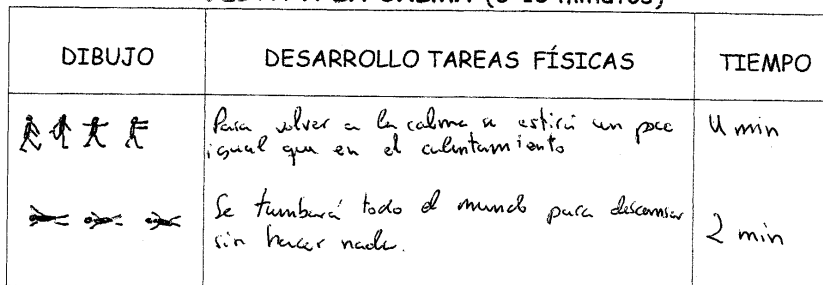 (5-10 minutos)
DIBUJO
DESARROLLO TAREAS FÍSICAS
TIEMPO
Para volver a la calma se estirá un poco
igual que en el calentamiento
4 min
Se tumbará todo el mundo para descansar
sin hacer nada.
2 min